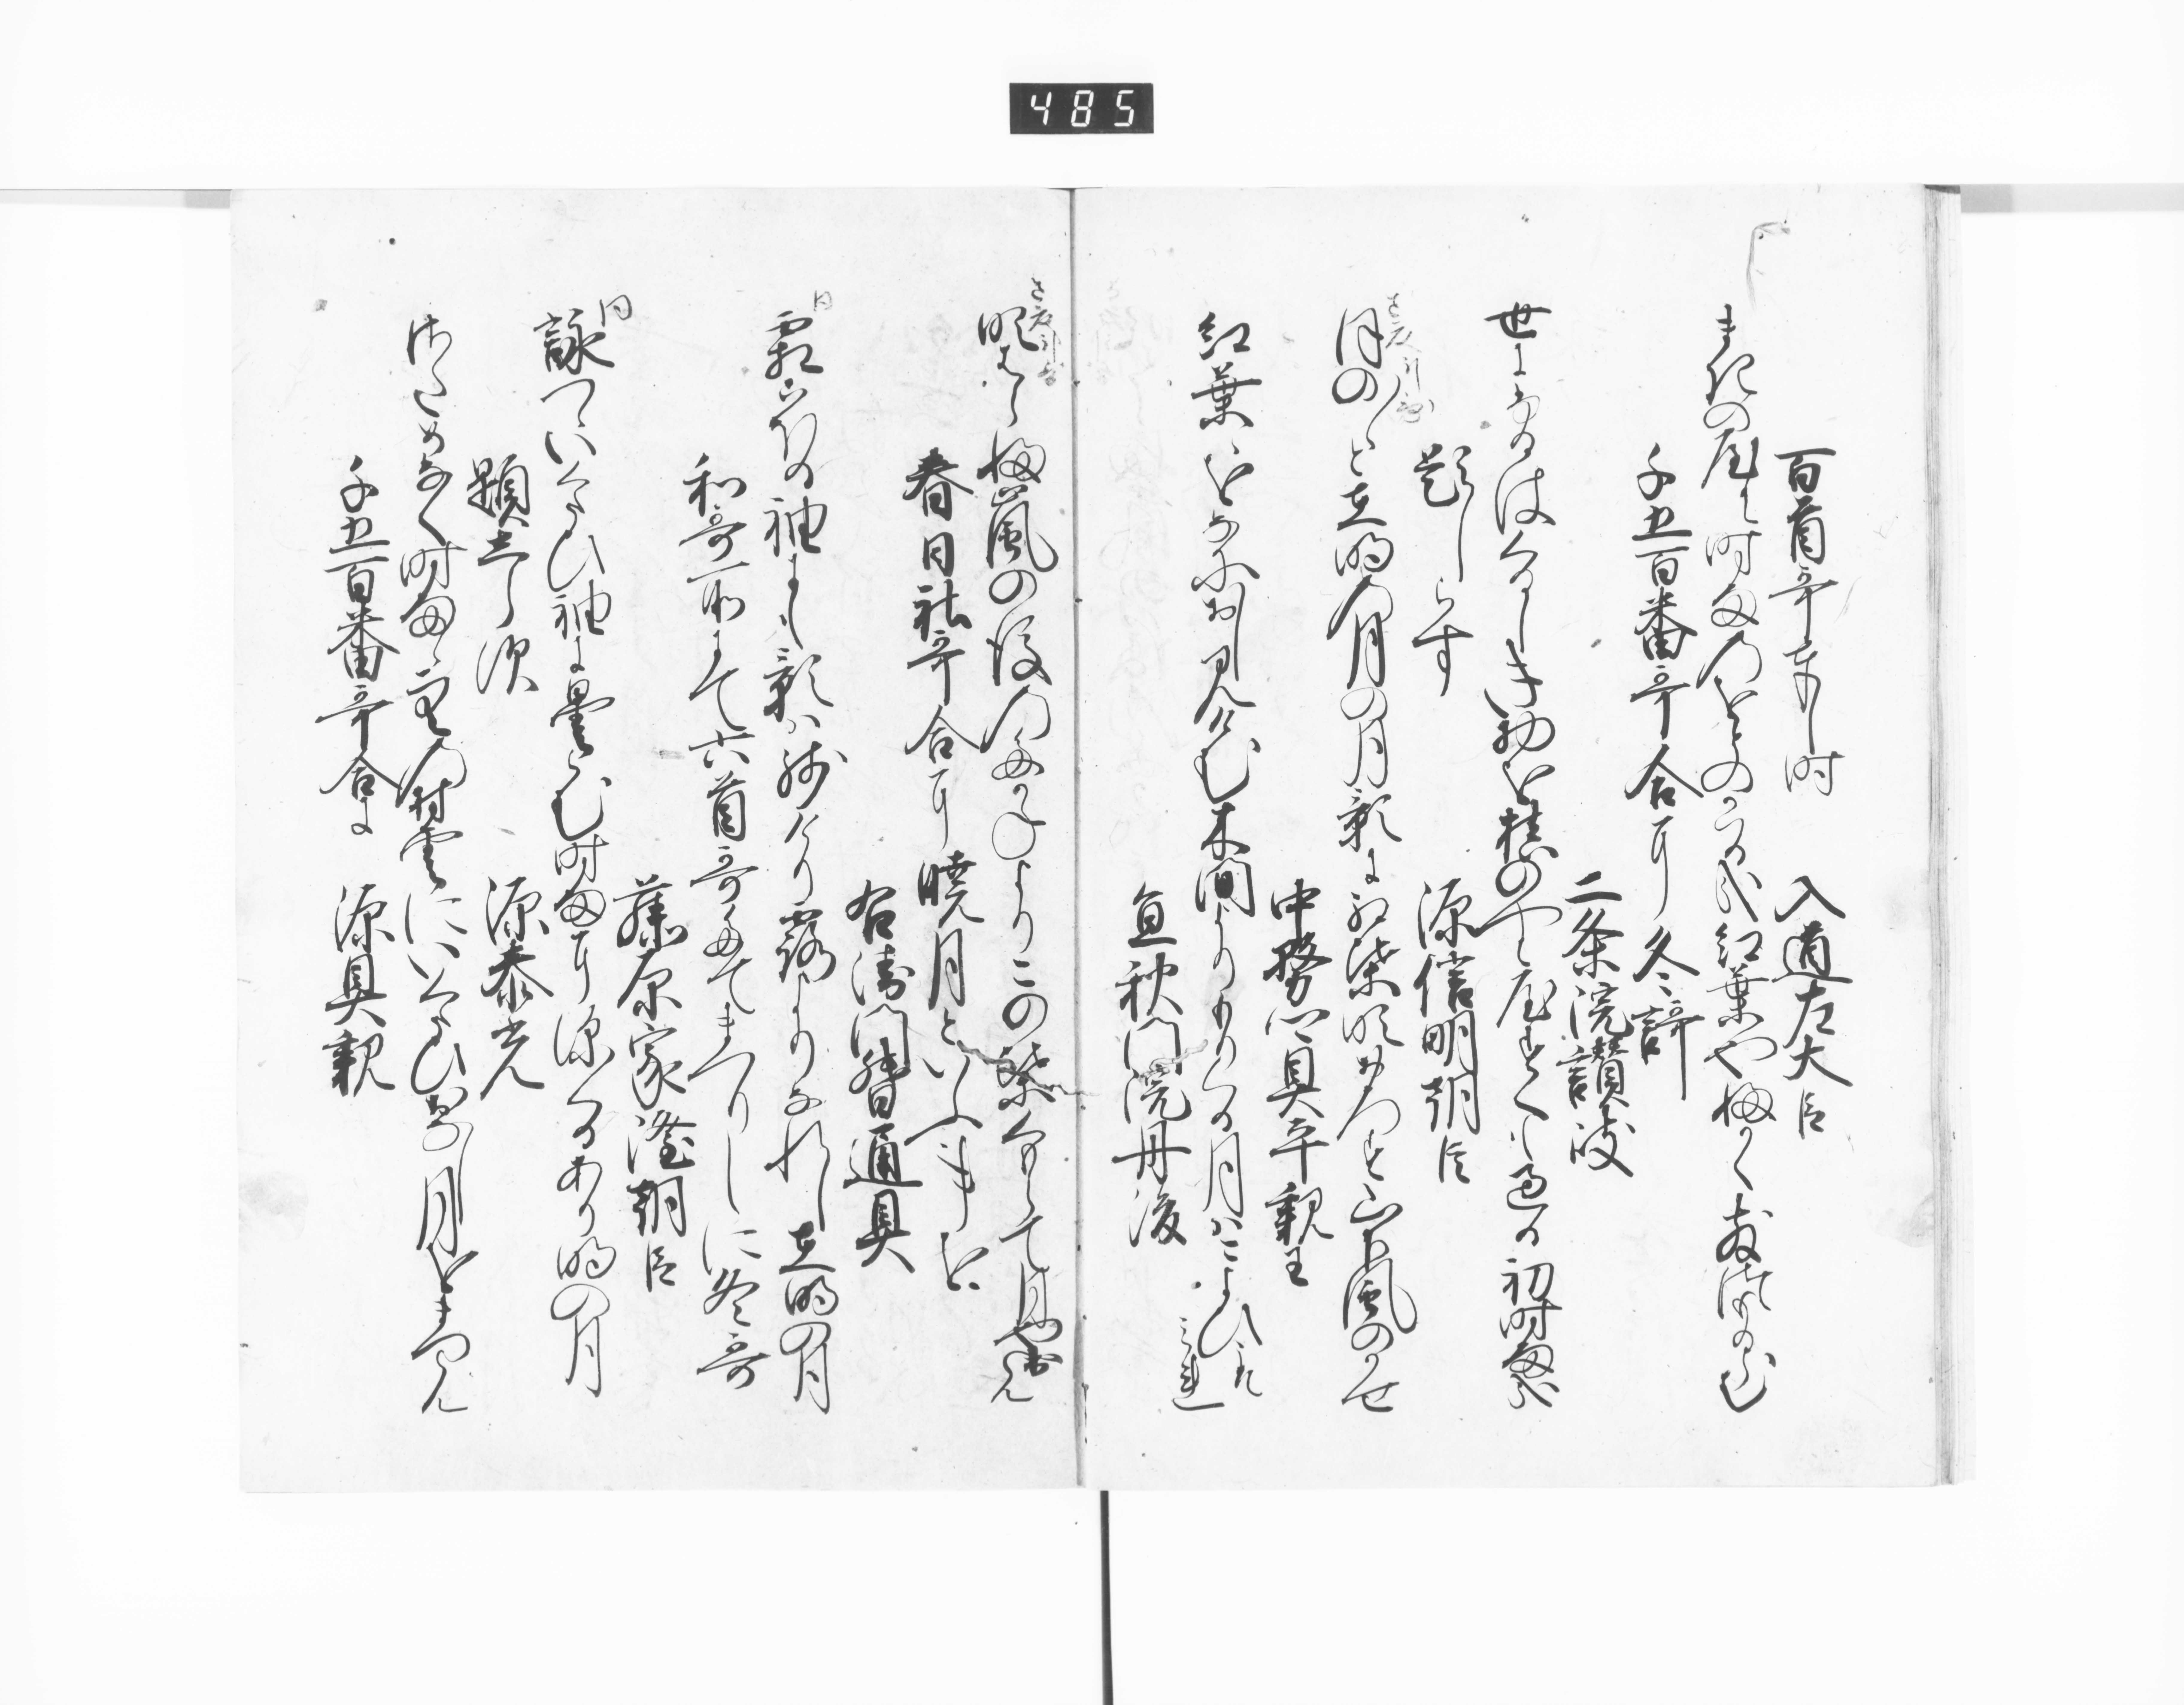 485
百首哥奉し時
入道左大臣
まきの屋に時雨のをとのかはる哉紅葉や梅くちるらむ
千五百番哥合に冬哥
二条院讃岐
世にふるはくるしき物を槙のやにやすくも過る初時雨哉
題しらす
源信明朝臣
ほの〱と在明の月の月影に紅葉吹おろす山おろしのかせ
中務卿具平親王
紅葉はをなにおしみけむ木間よりもりくる月はこよひこそみれ
宜秋門院丹後
吹はらふ嵐の後の高ねより木の葉くもらて月や出らん
春日社哥合に暁月といふ事を
右衛門督通具
霜こほる袖にも影は残けり露よりなれし在明の月
和哥所にて六首哥たてまつりしに冬哥
藤原家隆朝臣
詠つゝいくたひ袖に曇るらむ時雨にふくるあり明の月
題しらす
源泰光
定なく時雨る空の村雲にいくたひ同し月をまつらん
千五百番哥合に
源具親